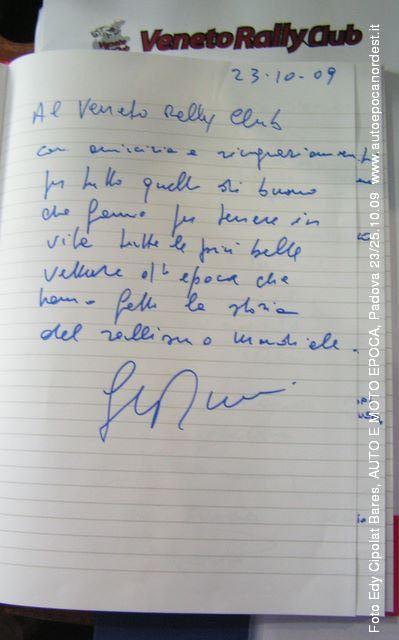 Veneto Rally Club
23-10-09
Al Veneto Rally Club
con amicizia e ringraziamento
per tutto quello di buono
che fanno per tenere in
vita tutte le più belle
vetture d' epoca che
hanno fatto la storia
del rallismo mondiale.
Foto Edy Cipolat Bares, AUTO E MOTO EPOCA, Padova 23/25.10.09 www.autoepocanordest.it